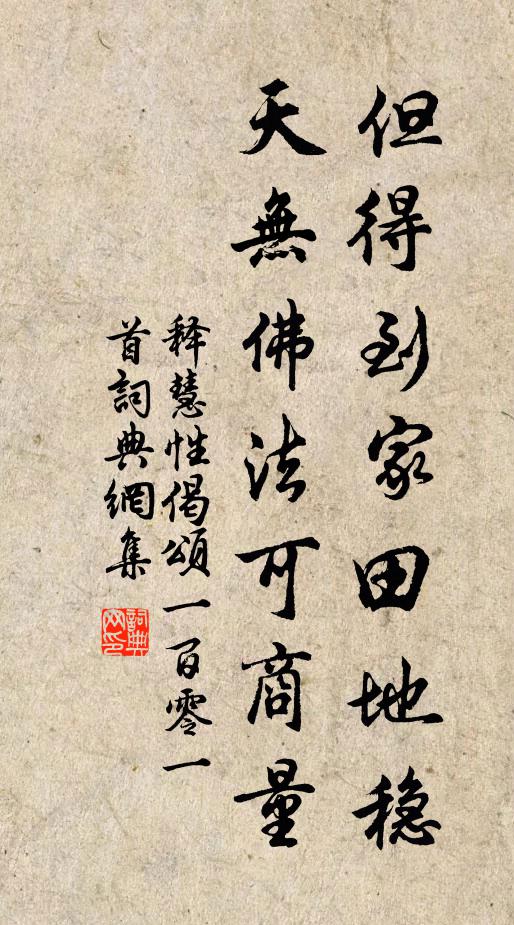 但得到家田地稳
天無佛法可商量
释慧性偈頌一百零一
首詞典網集
詞典
网印